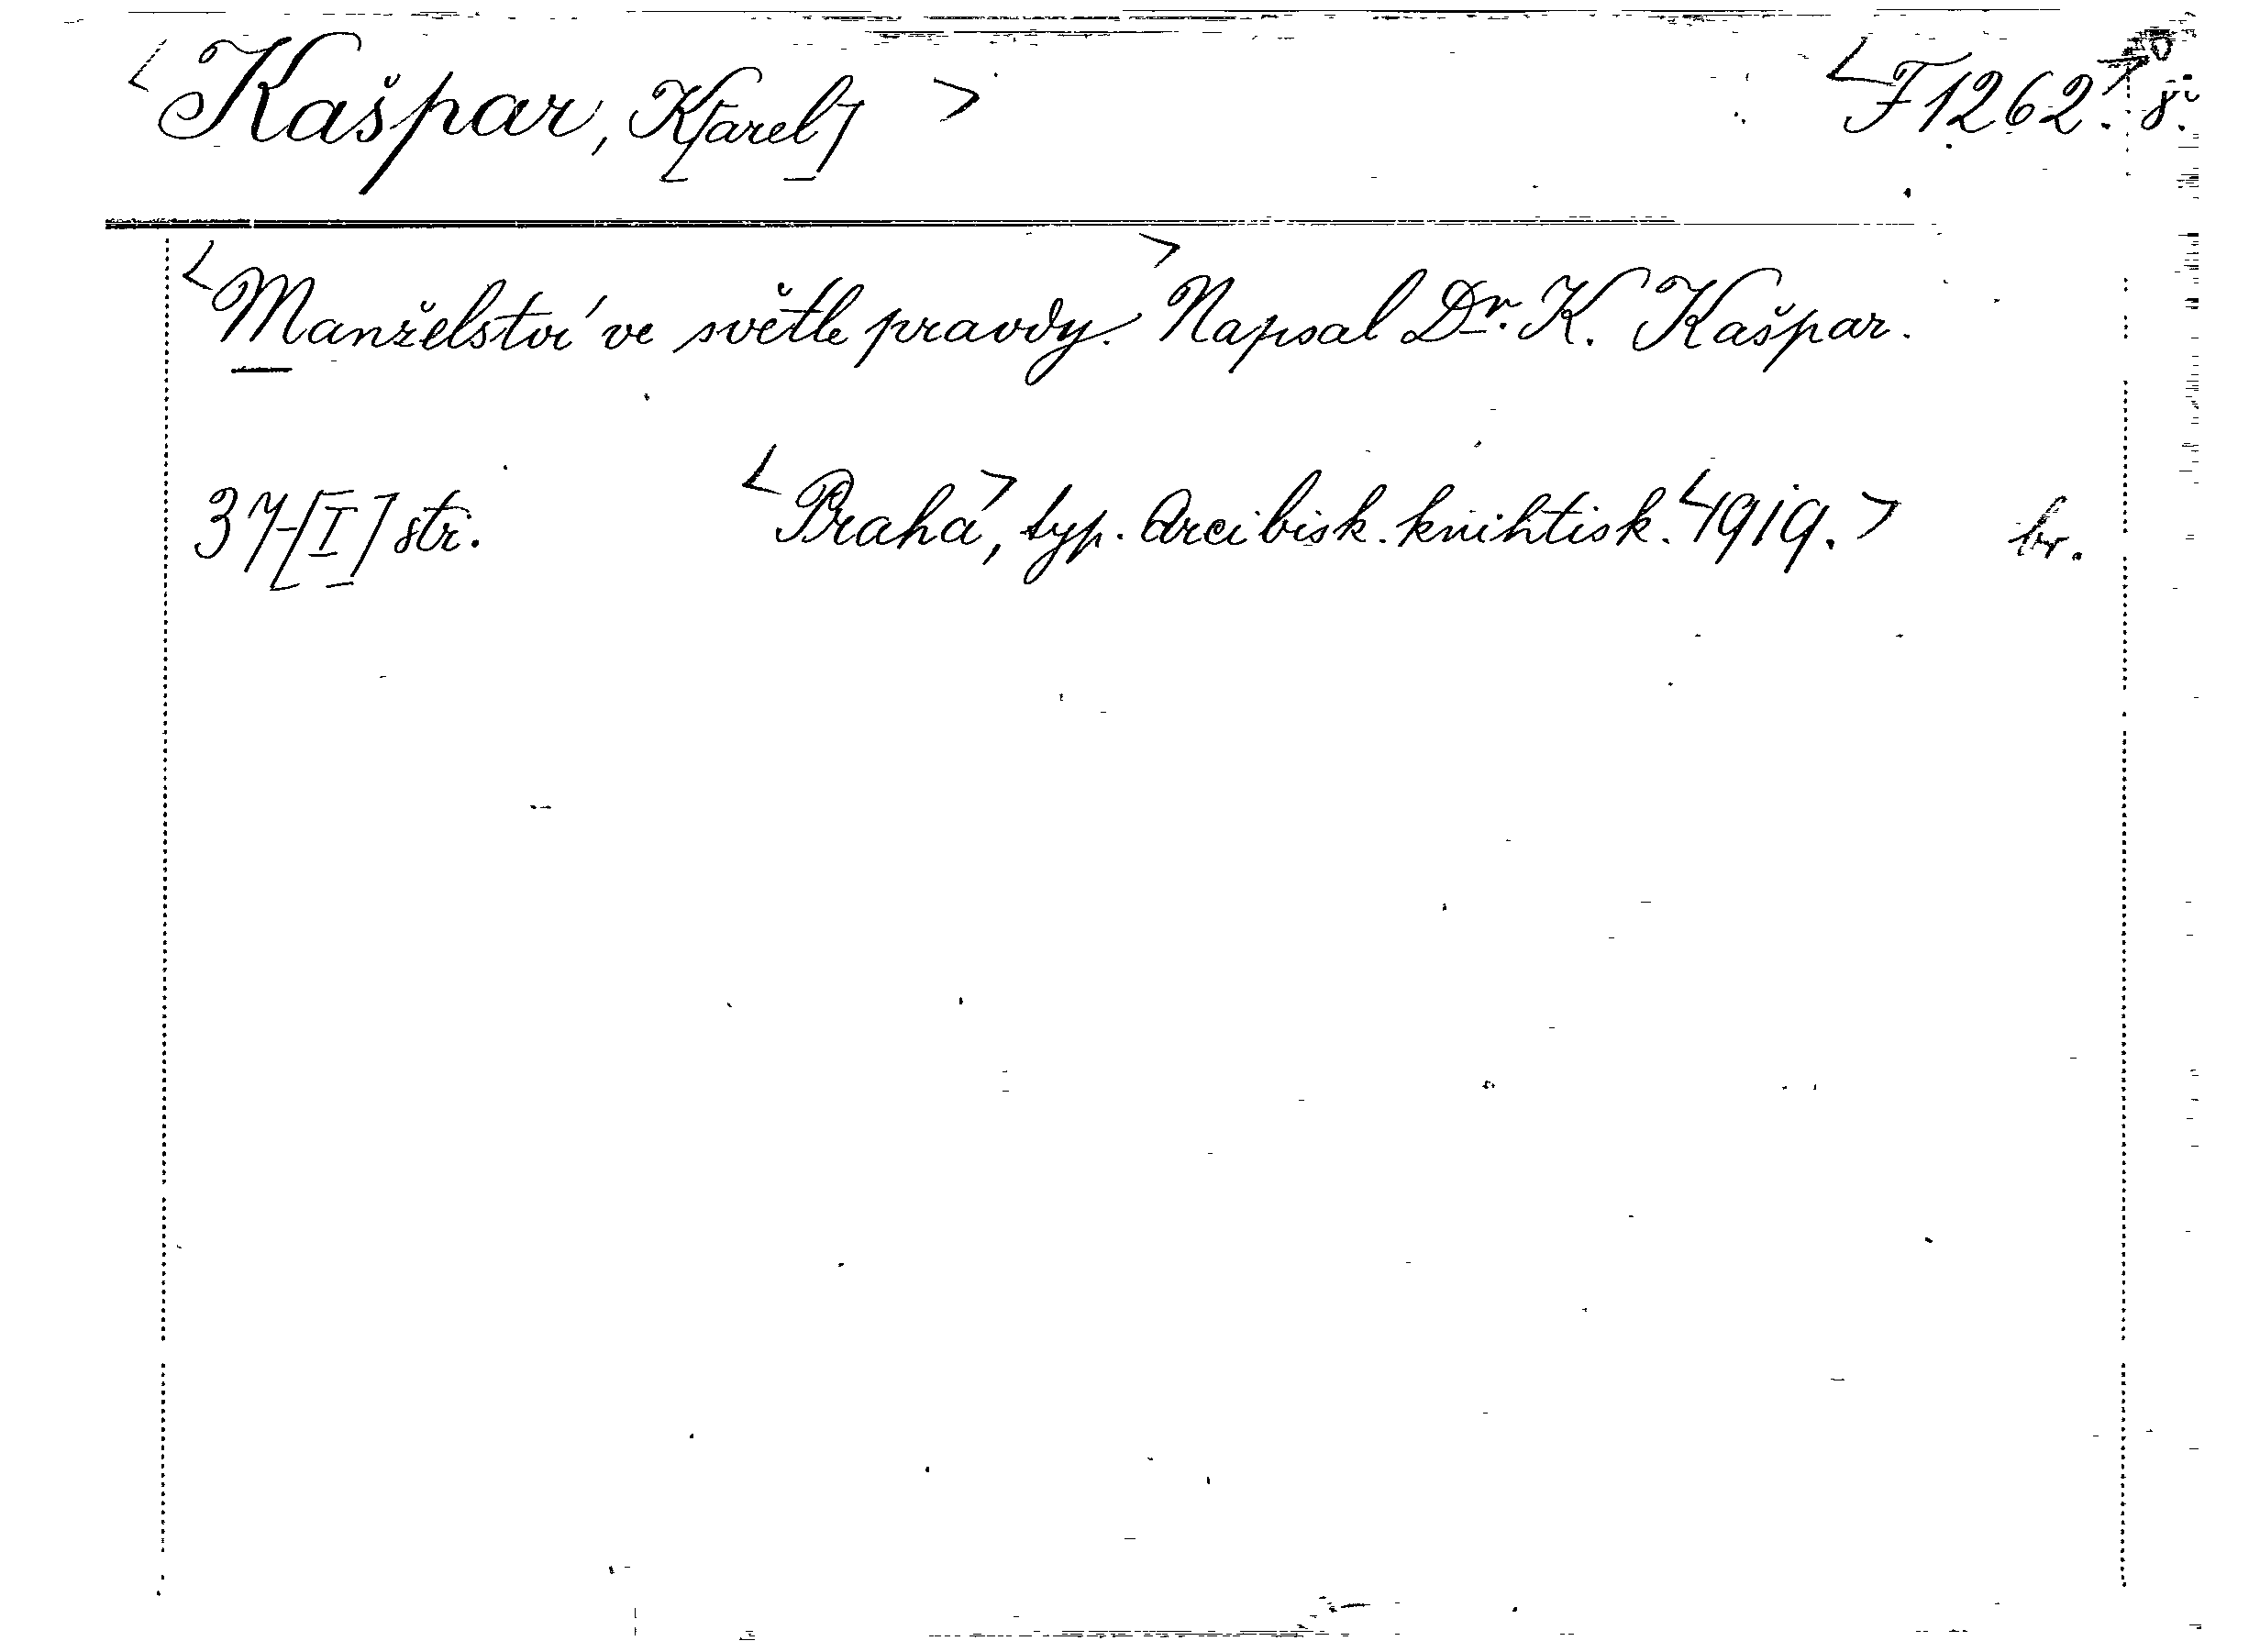 <Kašpar, K[arel]> <F 1262.> 8°.
<Manželství ve světle pravdy.> Napsal Dr. K. Kašpar.
37-[I] str. <Praha>, typ. Arcibisk. knihtisk. <1919.> br.